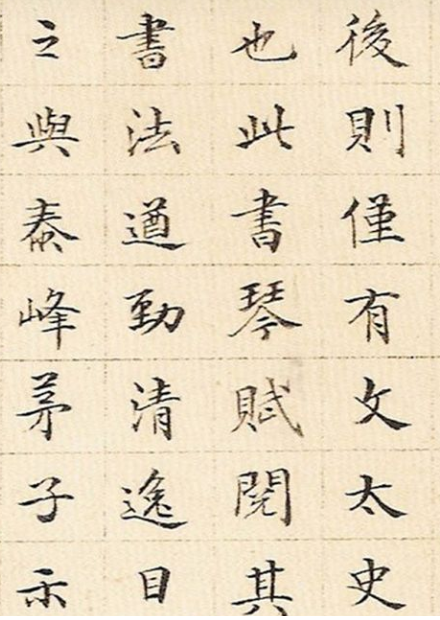 後則僅有文太史
也此書琴賦閱其
書法遒勁清逸目
之與泰峰茅子示